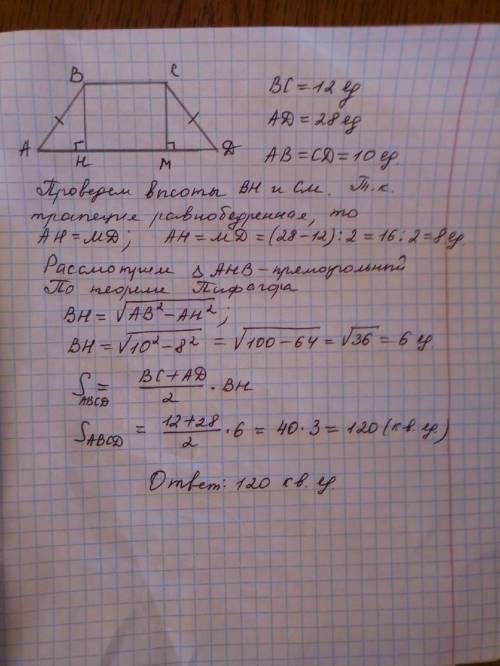 B C
A H M D
BC = 12 ед
AD = 28 ед
AB = CD = 10 ед.
Проведем высоты BH и CM. Т.к.
трапеция равнобедренная, то
AH = MD; AH = MD = (28-12):2 = 16:2 = 8 ед.
Рассмотрим △ AHB - прямоугольный
По теореме Пифагора
BH = √AB² - AH² ;
BH = √10² - 8² = √100 - 64 = √36 = 6 ед
S ABCD = BC + AD / 2 · BH
S ABCD = 12 + 28 / 2 · 6 = 40 · 3 = 120 (кв. ед.)
Ответ: 120 кв. ед.